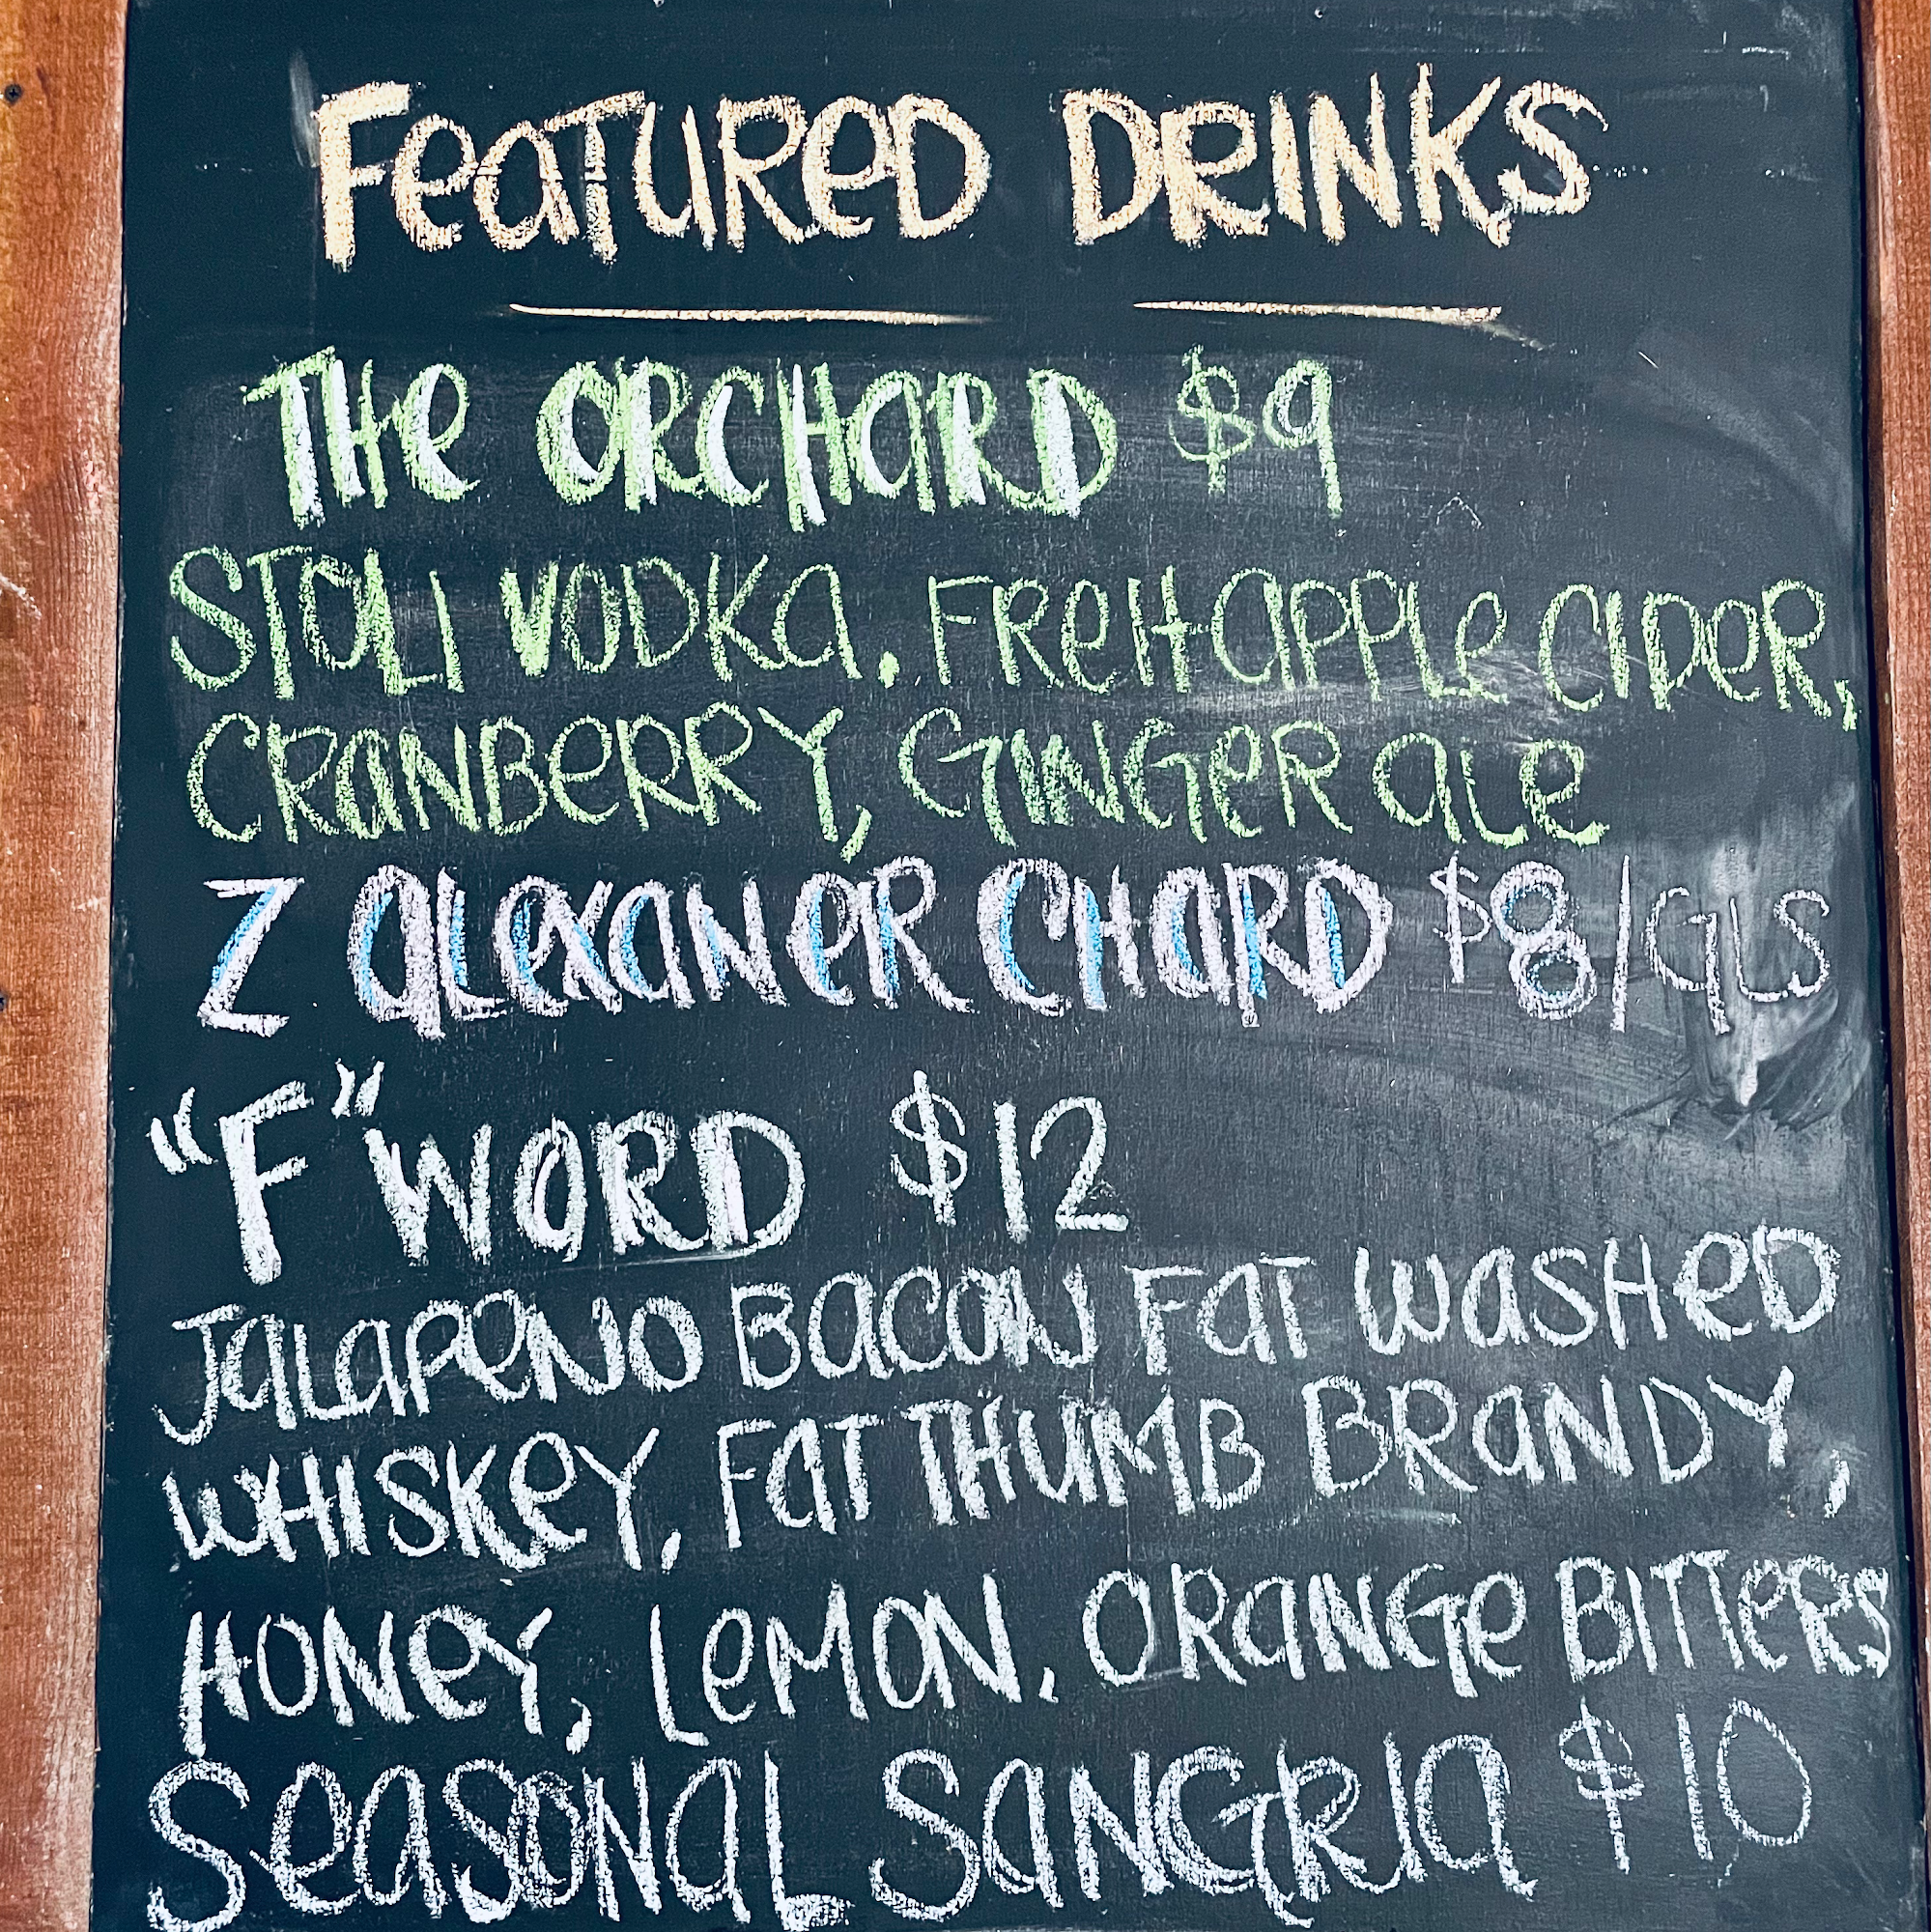 FeaTUReD DRINKS
THe ORCHaRD $9
STOLI VODKa. FReHaPPLe CIDeR,
CRaNBeRRY, GINGeR aLe
Z aLexaNeR CHaRD $8/GLS
"F" WORD $12
JaLaPeNO BaCON FaT WasHeD
WHISKeY, FaT THUMB BRaNDY,
HONeY, LeMON. ORaNGe BITTeRS
SeaSONaL SaNGRIa $10